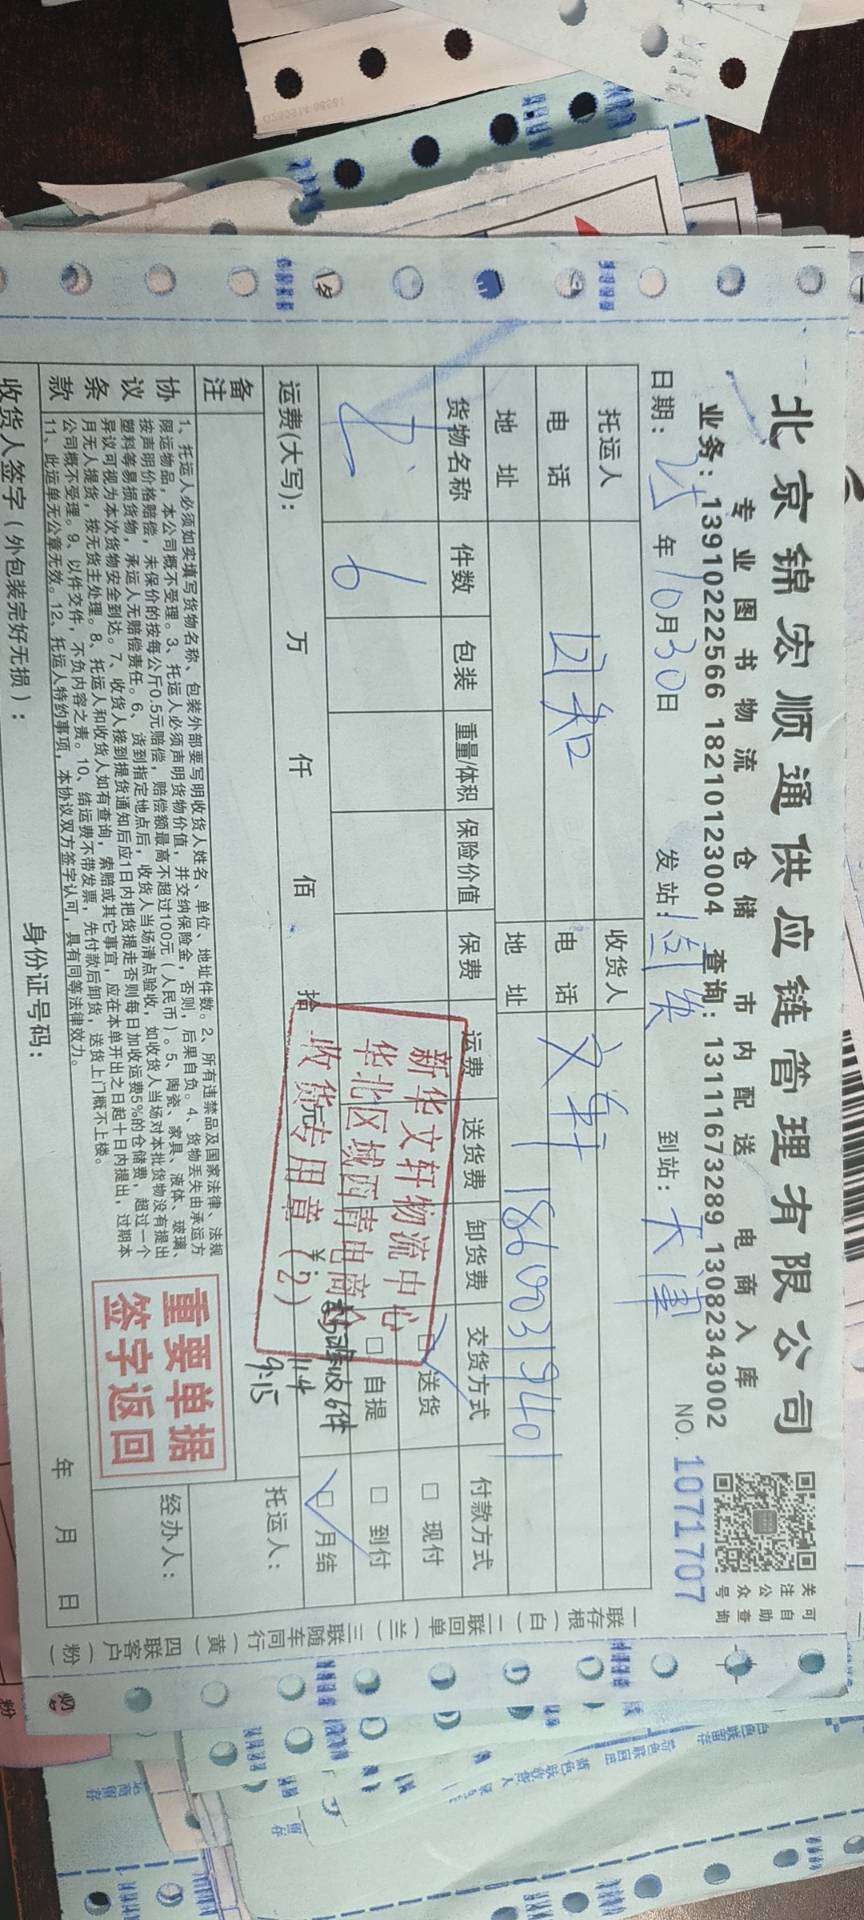 北京锦宏顺通供应链管理有限公司
专业图书物流 仓储 市内配送 电商入库
业务：13910222566 18210123004 查询：13111673289 13082343002
关注公众号
可自助查询
日期： 年10月30日 发站： 到站：天津 NO. 1071707
托运人 收货人
电话 电话 文轩 18600031940
地址 地址
货物名称 件数 包装 重量/体积 保险价值 保费 运费 送货费 卸货费 交货方式 付款方式
6 □送货 □现付
□自提 □到付
□月结
运费(大写)： 万 仟 佰 拾 元 ¥：
新华文轩物流中心
华北区域西青电商仓
收货专用章（2）
收6件
11.4
9:15
备注
托运人：
经办人：
协议条款
1、托运人必须如实填写货物名称、包装外部要写明收货人姓名、单位、地址件数。2、所有违禁品及国家法律、法规
限运物品，本公司概不受理。3、托运人必须声明货物价值，并交纳保险金，否则，后果自负。4、货物丢失由承运方
按声明价格赔偿，未保价的按每公斤0.5元赔偿，赔偿额最高不超过100元（人民币）。5、陶瓷、家具、液体、玻璃、
塑料等易损货物，承运人无赔偿责任。6、货到指定地点后，收货人当场清点验收，如收货人当场对本批货物没有提出
异议可视为本次货物安全到达。7、收货人接到提货通知后应1日内把货提走否则每日加收运费5%的仓储费，超过一个
月无人提货，按无货主处理。8、托运人和收货人如有查询，索赔或其它事宜，应在本单开出之日起十日内提出，过期本
公司概不受理。9、以件交件，不负内容之责。10、结运费不带发票，先付款后卸货，送货上门概不上楼。
11、此运单无公章无效。12、托运人特约事项，本协议双方签字认可，具有同等法律效力。
重要单据
签字返回
收货人签字（外包装完好无损）： 身份证号码： 年 月 日
一联存根（白）二联回单（兰）三联随车同行（黄）四联客户（粉）